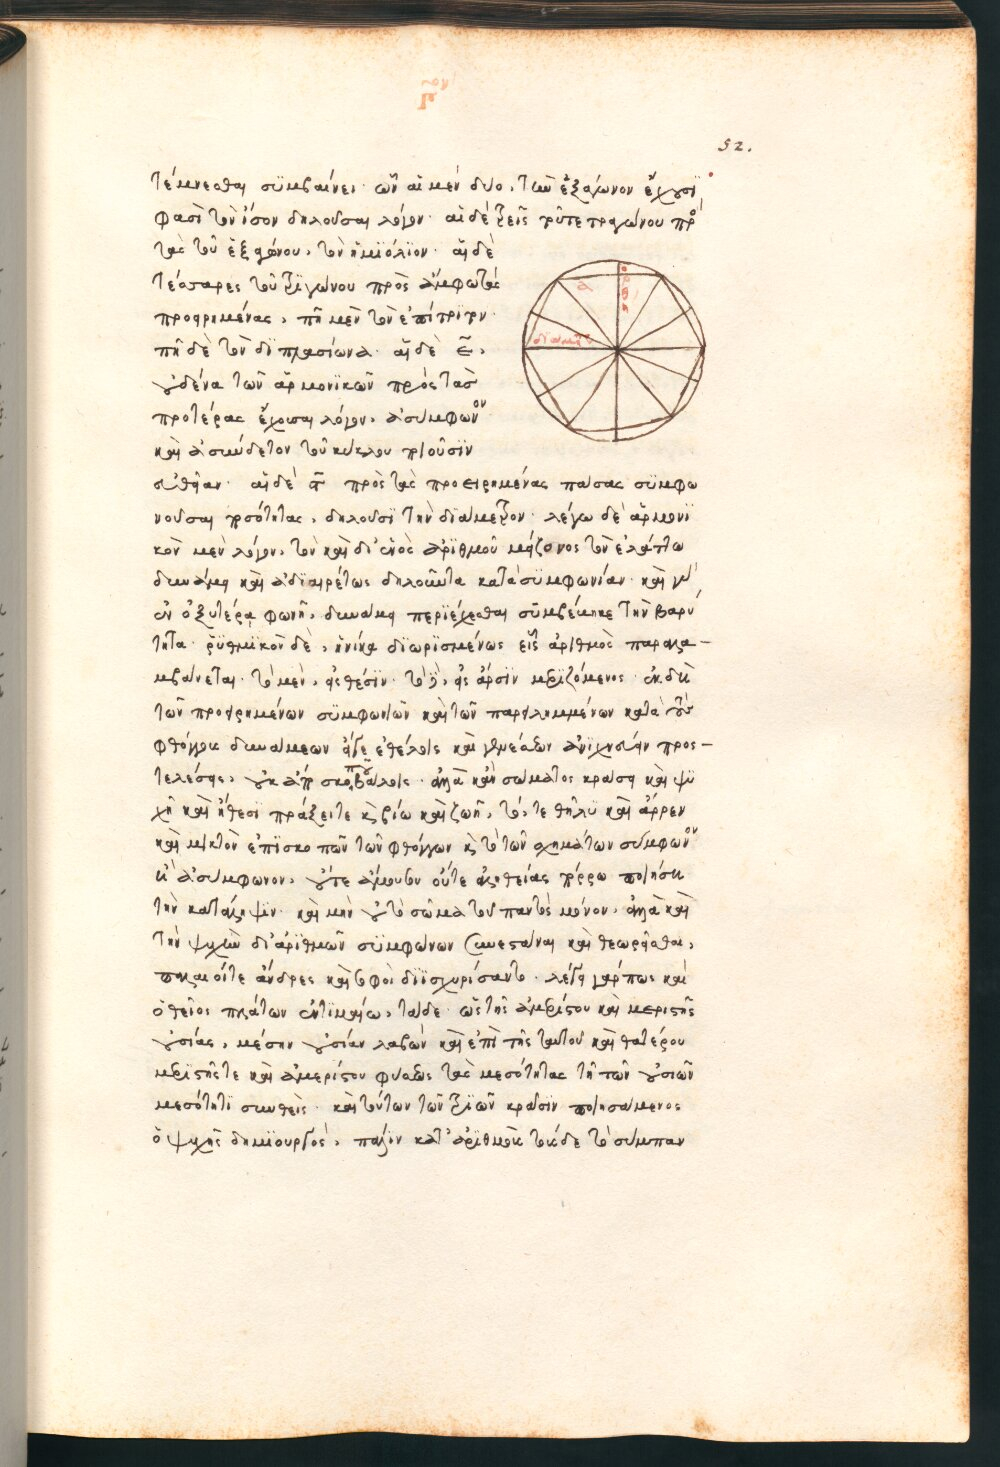 52.
τέμνεσθαι συμβαίνει· ὧν αἱ μὲν δύο, τῶν ἑξαγώνου ἔχουσι
φασὶ τὸν ἴσον δηλοῦσαι λόγον· αἱ δὲ τρεῖς τοῦ τετραγώνου πρὸς
τὰς τοῦ ἑξαγώνου, τὸν ἡμιόλιον· αἱ δὲ
τέσσαρες τοῦ τριγώνου πρὸς ἀμφωτὰς
προειρημένας, πῆ μὲν τὸν ἐπίτριτον·
πῆ δὲ τὸν διπλασίωνα· αἱ δὲ ε,
οὐδένα τῶν ἁρμονικῶν πρὸς τὰς
προτέρας ἔχουσαι λόγον, ἀσύμφωνον
καὶ ἀσύνδετον τοῦ κύκλου ποιοῦσιν
εὐθεῖαν· αἱ δὲ πρὸς τὰς προειρημένας πάσας συμφω
νοῦσαι ἰσότητας, δηλοῦσι τὴν διάμετρον· λέγω δὲ ἁρμονι
κὸν μὲν λόγον, τὸν καὶ δι' ἑνὸς ἀριθμοῦ μείζονος τὸν ἐλάττω
δυνάμει καὶ ἀδιαιρέτως δηλοῦντα κατὰ συμφωνίαν· καὶ γὰρ
ἐν ὀξυτέρᾳ φωνῇ, δυνάμει περιέχεσθαι συμβέβηκε τὴν βαρύ
τητα· ῥυθμικὸν δὲ, ἡνίκα διωρισμένως εἷς ἀριθμὸς παραλα–
μβάνεται· τὸ μὲν, εἰς θέσιν· τὸ δὲ, εἰς ἄρσιν μεριζόμενος· ἐκ δὴ
τῶν προειρημένων συμφωνιῶν καὶ τῶν παρειλημμένων κατὰ τοὺς
φθόγγους δυνάμεων εἴγε ἐθέλοις καὶ ἀνιχνεύειν προς–
τελέσεις, οὐκ ἀπροσκόπου βάλοις· ἀλλὰ κἂν σώματος κράσει καὶ ψυ
χῆ καὶ ἤθεσι πράξει τε καὶ βίω καὶ ζωῇ, τό, τε θῆλυ καὶ ἄρρεν
καὶ μικτὸν ἐπισκοπῶν τῶν φθόγγων καὶ τὸ τῶν σχημάτων σύμφωνον
ἢ ἀσύμφωνον, οὔτε ἄμουσον οὔτε ἀληθείας πόρρω ποιήσῃ
τὴν κατάληψιν· καὶ μὴν οὐ τὸ σῶμα τοῦ παντὸς μόνον, ἀλλὰ καὶ
τὴν ψυχὴν δι' ἀριθμῶν συμφώνων συνεστάναι καὶ θεωρεῖσθαι,
παλαιοί τε ἄνδρες καὶ σοφοὶ διϊσχυρίσαντο· λέγει γάρ πως καὶ
ὁ θεῖος πλάτων ἐν τιμαίω, τάδε· ὡς τῆς ἀμερίστου καὶ μεριστῆς
οὐσίας, μέσην οὐσίαν λαβὼν καὶ ἐπὶ τῆς ταυτοῦ καὶ θατέρου
μεριστῆς τε καὶ ἀμερίστου φύσεως τὰς μεσότητας τῇ τῶν οὐσιῶν
μεσότητι συνθεὶς· καὶ τούτων τῶν τριῶν κρᾶσιν ποιησάμενος
ὁ ψυχῆς δημιουργὸς, πάλιν κατ' ἀριθμοὺς τούσδε τὸ σύμπαν